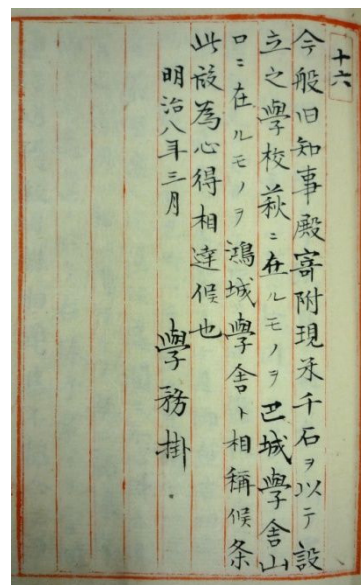 十六
今般旧知事殿寄附現米千石ヲ以テ設
立之學校萩ニ在ルモノヲ巴城學舎山
口ニ在ルモノヲ鴻城學舎ト相稱候条
此段為心得相達候也
明治八年三月
學務掛